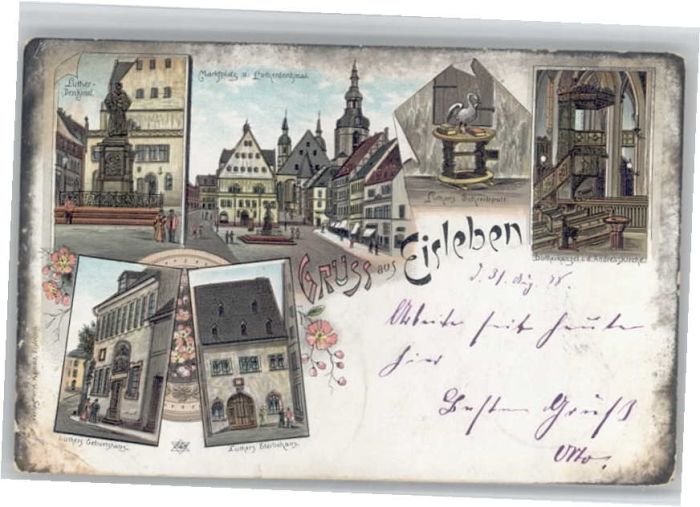 Luther-
Denkmal.
Marktplatz u. Lutherdenkmal.
Luthers Schreibpult
Lutherkanzel i. d. Andreas-Kirche.
Gruss aus Eisleben
d. 31. Aug. 98.
Arbeite seit heute
hier
Besten Gruß
Otto.
Luthers Geburtshaus.
Luthers Sterbehaus.